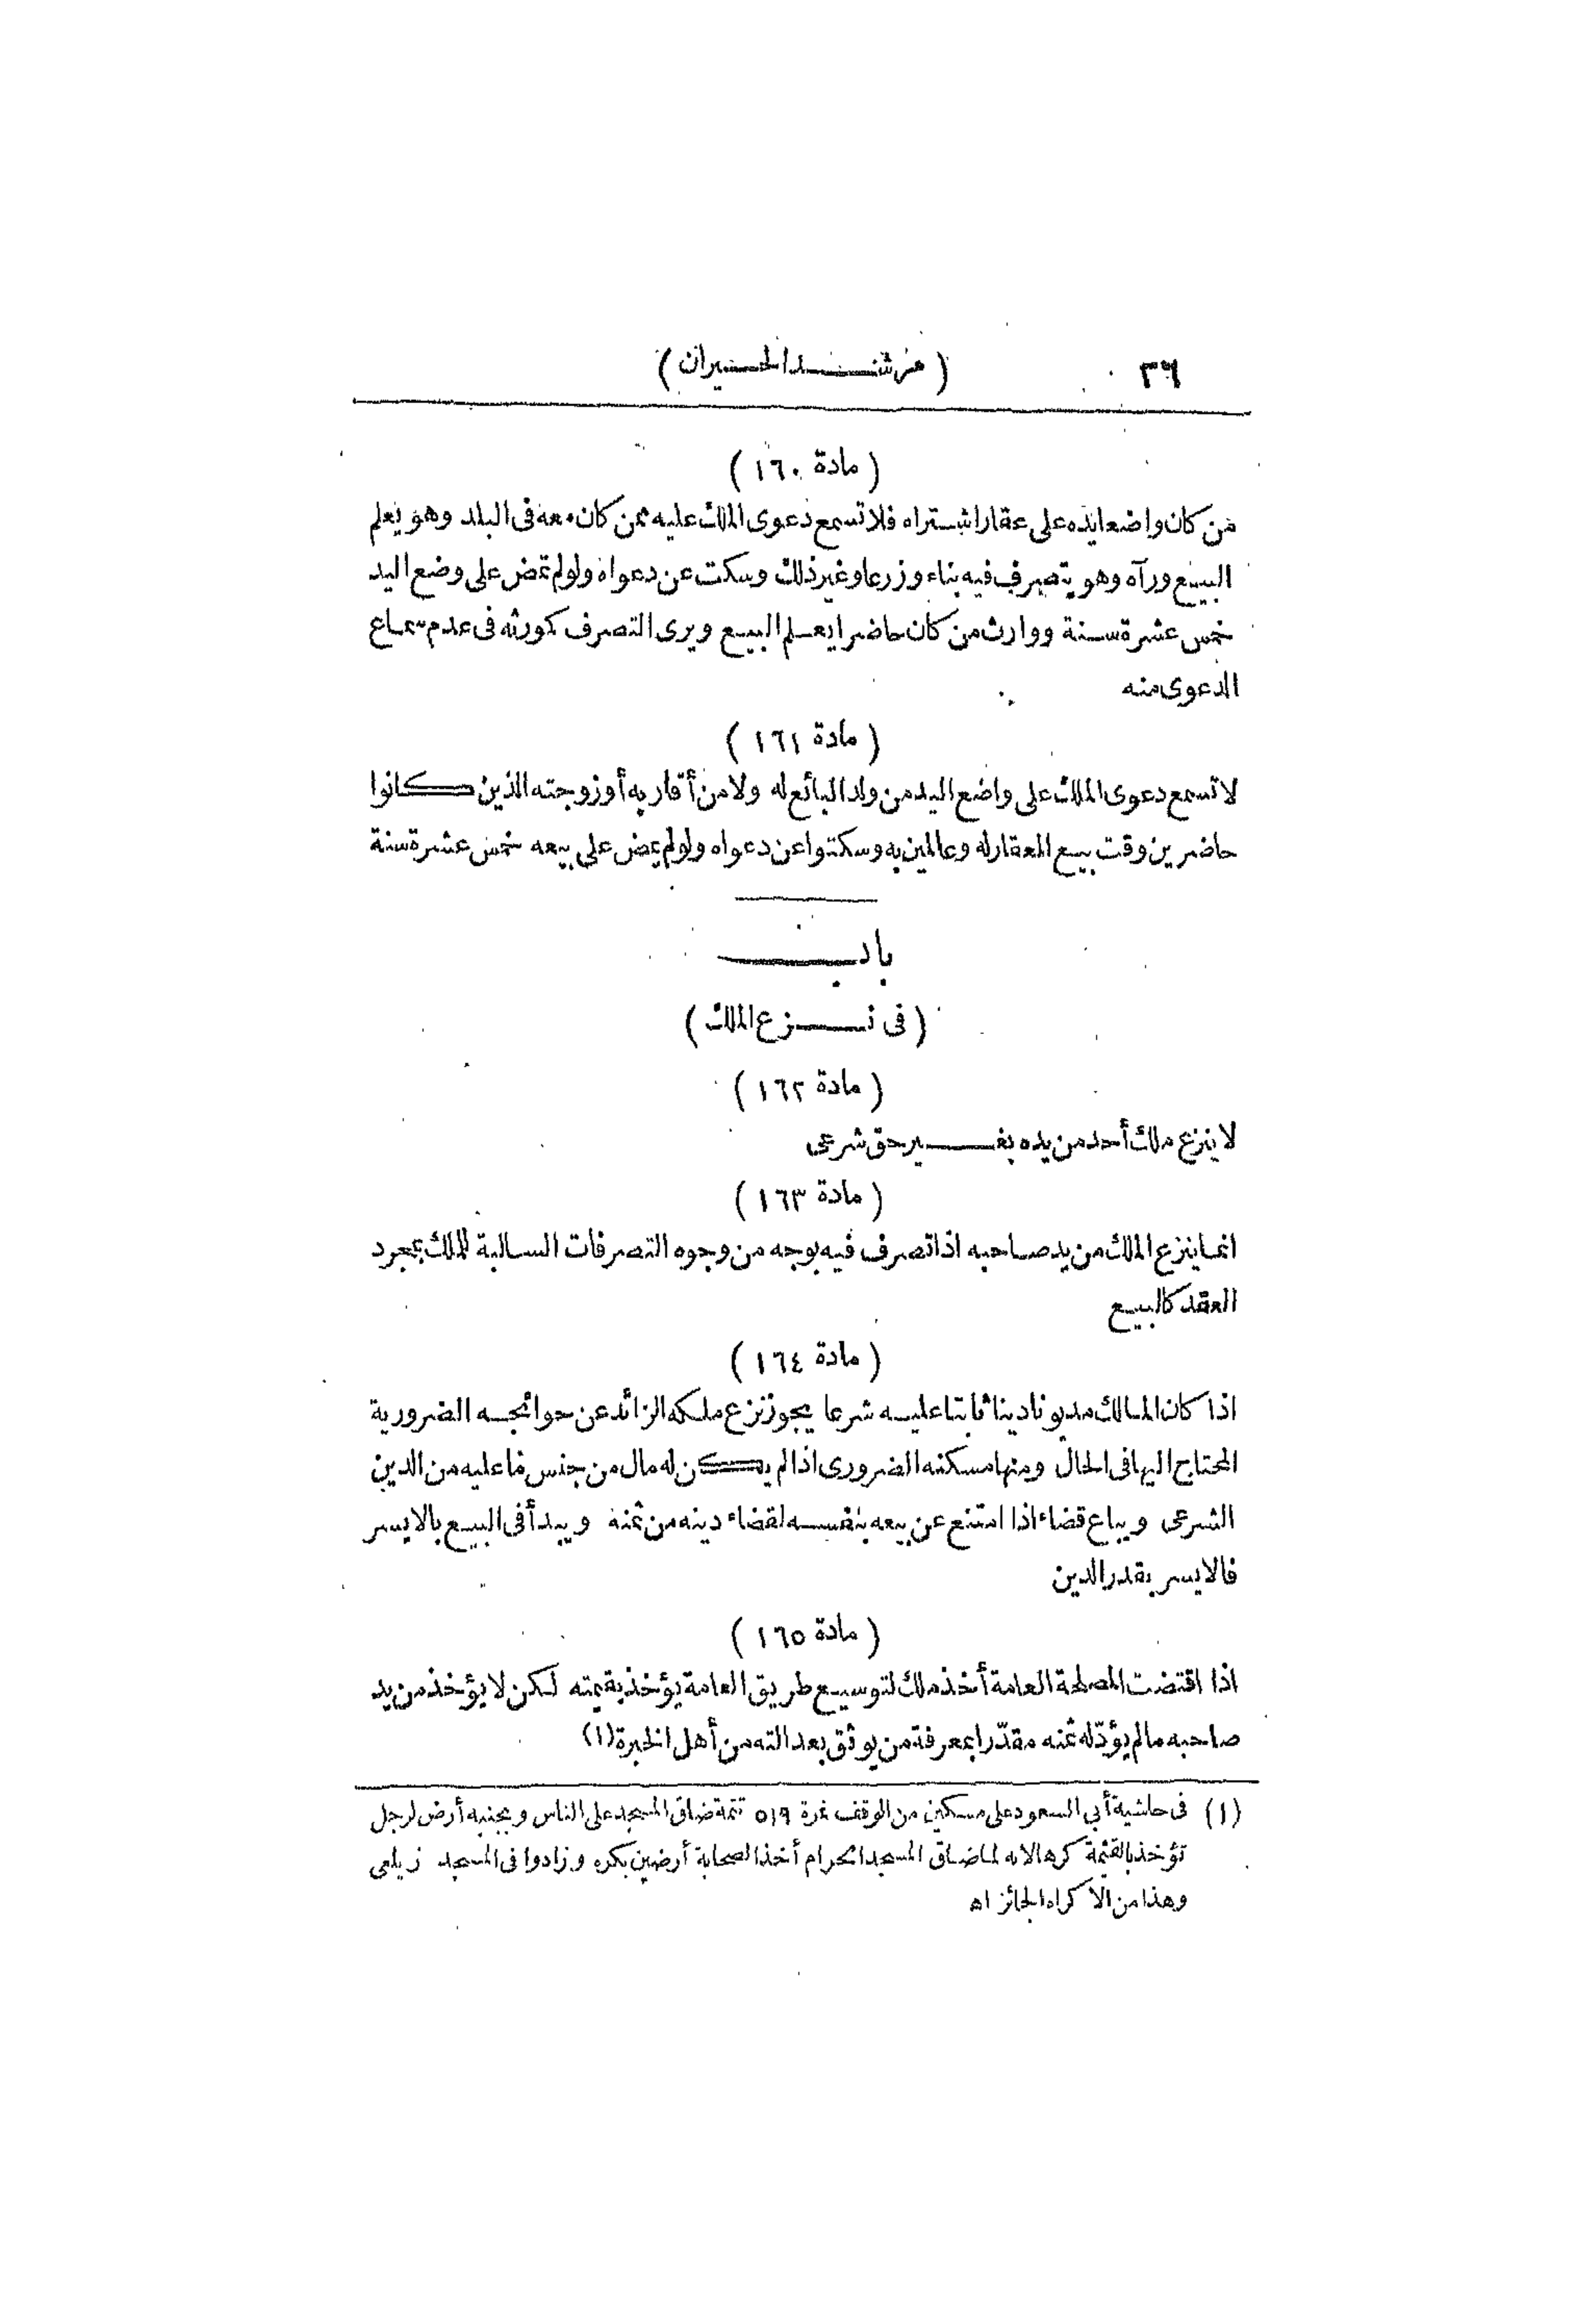 ٣٦ (مرشد الحيران)
(مادة ١٦٠)
من كان واضعا يده على عقار اشتراه فلا تسمع دعوى الملك عليه ممن كان معه فى البلد وهو يعلم
البيع ورآه وهو يتصرف فيه بناء وزرعا وغير ذلك وسكت عن دعواه ولو لم تمض على وضع اليد
خمس عشرة سنة ووارث من كان حاضرا يعلم البيع ويرى التصرف كمورثه فى عدم سماع
الدعوى منه
(مادة ١٦١)
لا تسمع دعوى الملك على واضع اليد من ولد البائع له ولا من أقاربه أو زوجته الذين كانوا
حاضرين وقت بيع العقار له وعالمين به وسكتوا عن دعواه ولو لم يمض على بيعه خمس عشرة سنة
باب
(فى نزع الملك)
(مادة ١٦٢)
لا ينزع ملك أحد من يده بغير حق شرعى
(مادة ١٦٣)
انما ينزع الملك من يد صاحبه اذا تصرف فيه بوجه من وجوه التصرفات السالبة للملك بمجرد
العقد كالبيع
(مادة ١٦٤)
اذا كان المالك مديونا دينا ثابتا عليه شرعا يجوز نزع ملكه الزائد عن حوائجه الضرورية
المحتاج اليها فى الحال ومنها مسكنه الضرورى اذا لم يكن له مال من جنس ما عليه من الدين
الشرعى ويباع قضاء اذا امتنع عن بيعه بنفسه لقضاء دينه من ثمنه ويبدأ فى البيع بالايسر
فالايسر بقدر الدين
(مادة ١٦٥)
اذا اقتضت المصلحة العامة أخذ ملك لتوسيع طريق العامة يؤخذ بقيمته لكن لا يؤخذ من يد
صاحبه ما لم يؤدّ له ثمنه مقدّرا بمعرفة من يوثق بعدالته من أهل الخبرة (١)
(١) فى حاشية أبى السعود على مسكين من الوقف نمرة ٥١٩ تتمة ضاق المسجد على الناس وبجنبه أرض لرجل
تؤخذ بالقيمة كرها لانه لما ضاق المسجد الحرام أخذ الصحابة أرضين بكره وزادوا فى المسجد زيلعى
وهذا من الاكراه الجائز اه